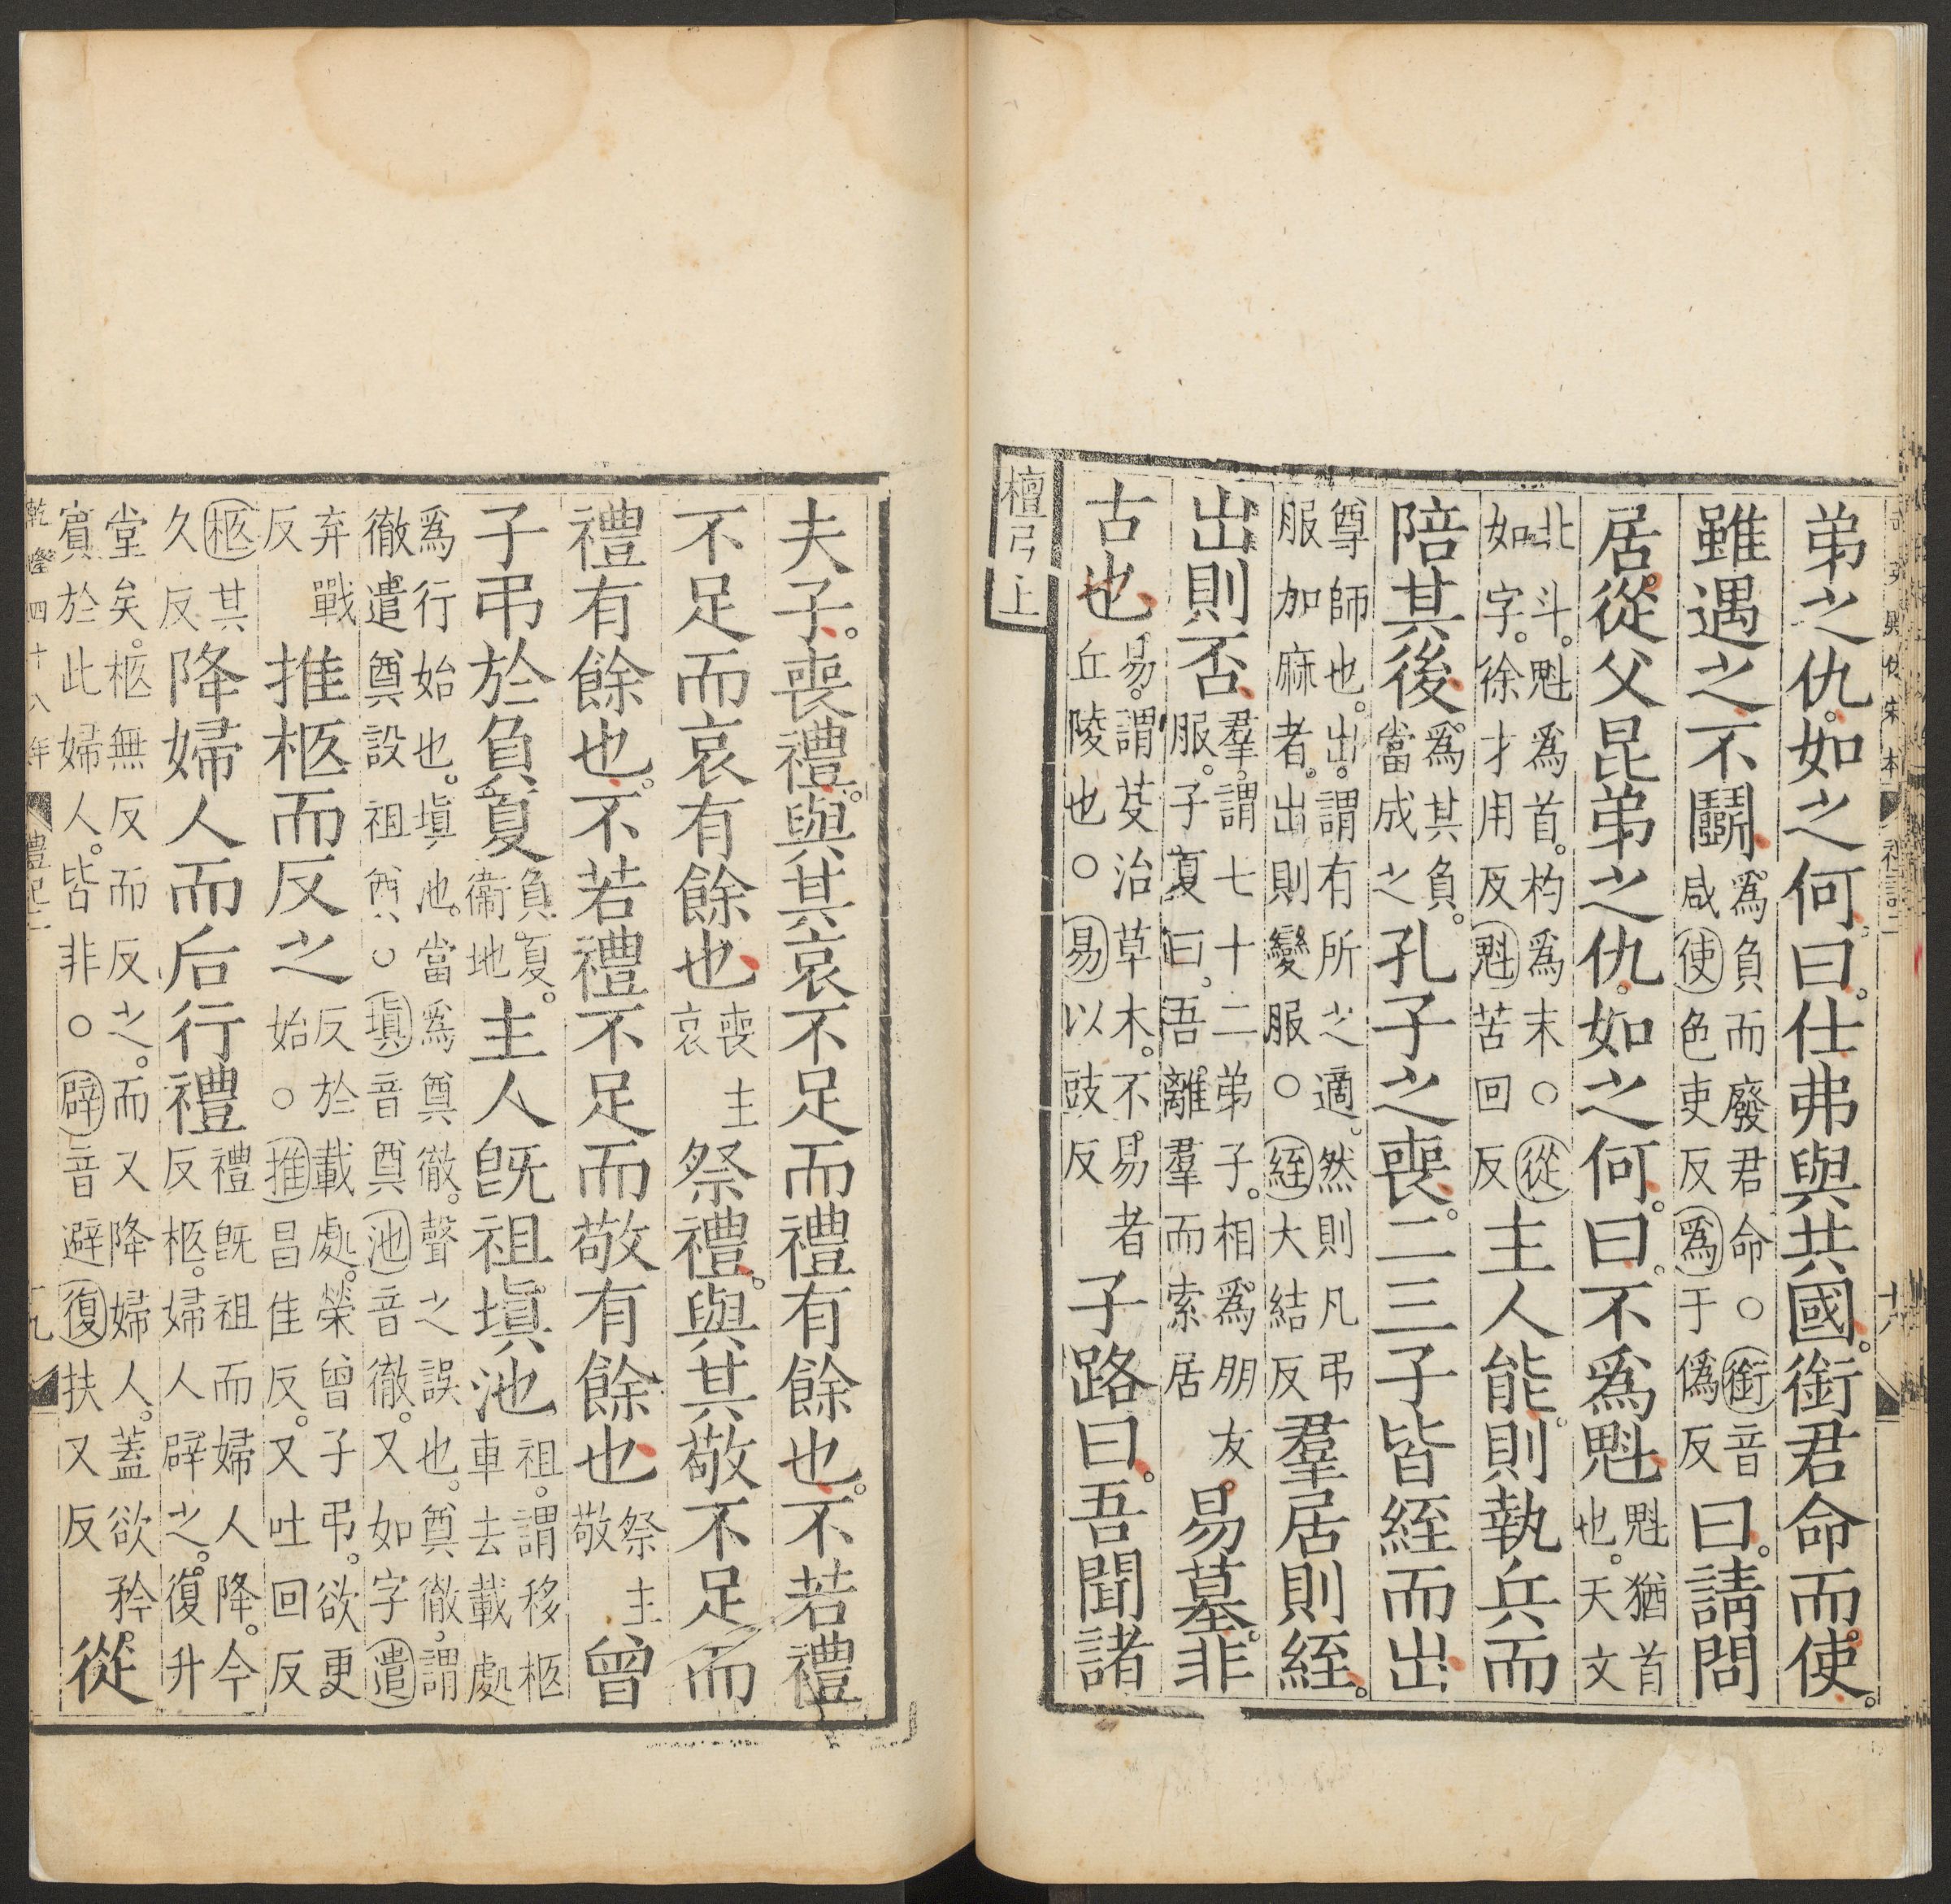 英殿仿宋本 禮記二 十八
弟之仇。如之何。曰。仕弗與共國。銜君命而使。
雖遇之不鬬。爲負而廢君命○銜音咸使色吏反爲于僞反曰。請問
居從父昆弟之仇。如之何。曰。不爲魁魁猶首也。天文
北斗。魁爲首。杓爲末○從如字。徐才用反魁苦回反主人能。則執兵而
陪其後爲其負。當成之孔子之喪。二三子皆絰而出
尊師也。出。謂有所之適。然則凡弔服加麻者。出則變服○絰大結反羣居則絰。
出則否羣。謂七十二弟子。相爲朋友服。子夏曰。吾離羣而索居易墓。非
古也易。謂芟治草木。不易者丘陵也○易以豉反子路曰。吾聞諸
檀弓上
夫子。喪禮。與其哀不足而禮有餘也。不若禮
不足而哀有餘也喪主哀祭禮。與其敬不足而
禮有餘也。不若禮不足而敬有餘也祭主敬曾
子弔於負夏負夏。衞地主人旣祖塡池祖。謂移柩車去載處
爲行始也。塡池。當爲奠徹。聲之誤也。奠徹。謂徹遣奠設祖奠○塡音奠池音徹。又如字遣
弃戰反推柩而反之反於載處。榮曾子弔。欲更始○推昌佳反。又吐回反
柩其久反降婦人而后行禮禮旣祖而婦人降。今反柩。婦人辟之。復升
堂矣。柩無反而反之。而又降婦人。蓋欲矜賔於此婦人。皆非○辟音避復扶又反從
乾隆四十八年 禮記二 十九